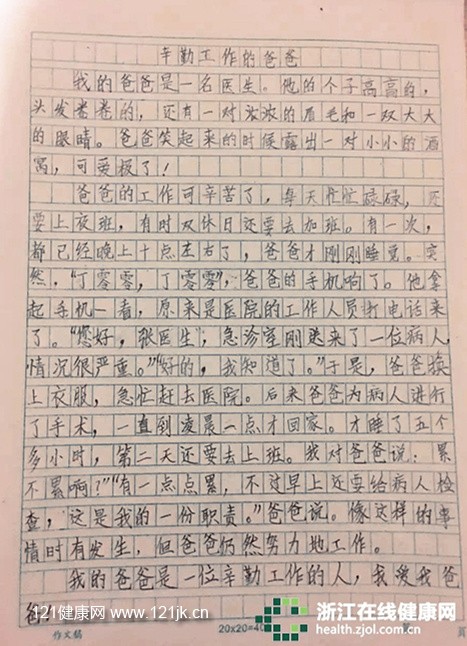 辛勤工作的爸爸
我的爸爸是一名医生。他的个子高高的,
头发卷卷的，还有一对浓浓的眉毛和一双大大
的眼睛。爸爸笑起来的时候露出一对小小的酒
窝，可爱极了！
爸爸的工作可辛苦了，每天忙忙碌碌，还
要上夜班，有时双休日还要去加班。有一次，
都已经晚上十点左右了，爸爸才刚刚睡觉。突
然，“丁零零，丁零零”，爸爸的手机响了。他拿
起手机一看，原来是医院的工作人员打电话来
了。“您好，张医生，急诊室刚送来了一位病人，
情况很严重。”“好的，我知道了。”于是，爸爸换
上衣服，急忙赶去医院。后来爸爸为病人进行
了手术，一直到凌晨一点才回家。才睡了五个
多小时，第二天还要去上班。我对爸爸说：累
不累啊？”“有一点点累，不过早上还要给病人检
查，这是我的一份职责。”爸爸说。像这样的事
情时有发生，但爸爸仍然努力地工作。
我的爸爸是一位辛勤工作的人，我爱我爸
爸
121健康网 www.121jk.cn
浙江在线健康网
health.zjol.com.cn
作文稿
20x20=40
页